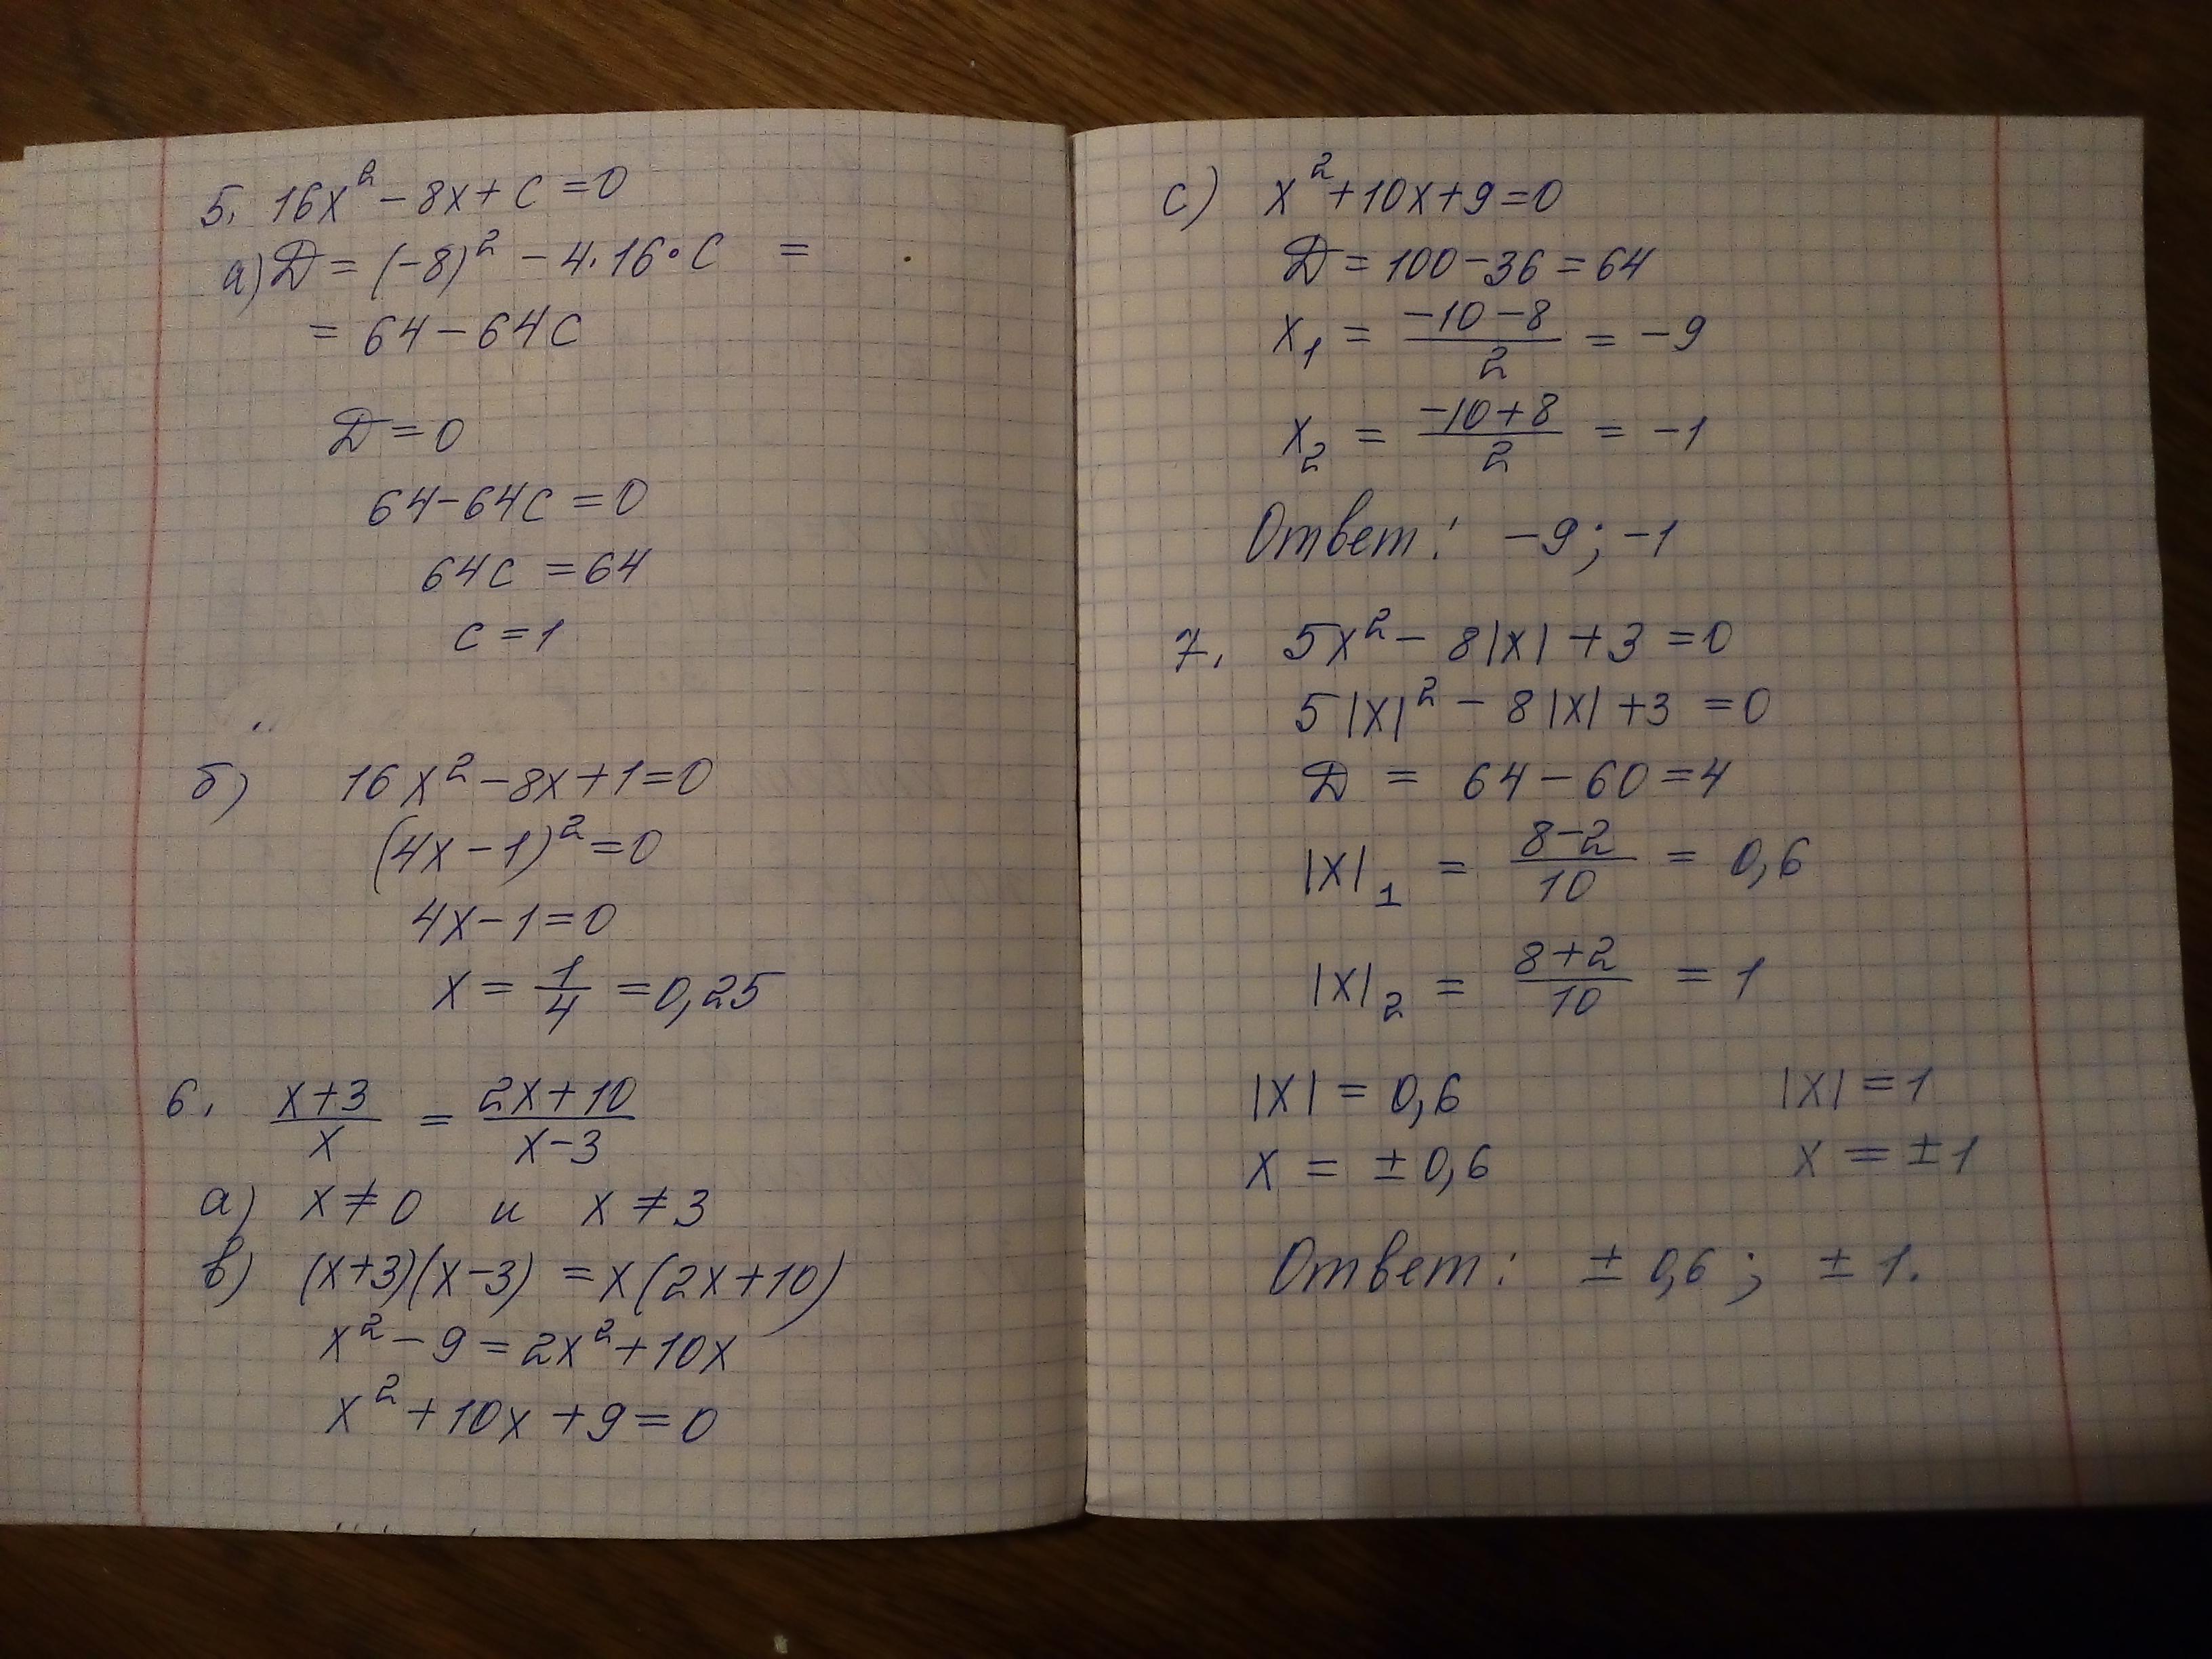 5. 16x² - 8x + c = 0
а) D = (-8)² - 4·16·c =
= 64 - 64c
D = 0
64 - 64c = 0
64c = 64
c = 1
б) 16x² - 8x + 1 = 0
(4x - 1)² = 0
4x - 1 = 0
x = 1/4 = 0,25
6. (x+3)/x = (2x+10)/(x-3)
a) x ≠ 0 и x ≠ 3
b) (x+3)(x-3) = x(2x+10)
x² - 9 = 2x² + 10x
x² + 10x + 9 = 0
c) x² + 10x + 9 = 0
D = 100 - 36 = 64
x₁ = (-10-8)/2 = -9
x₂ = (-10+8)/2 = -1
Ответ: -9; -1
7. 5x² - 8|x| + 3 = 0
5|x|² - 8|x| + 3 = 0
D = 64 - 60 = 4
|x|₁ = (8-2)/10 = 0,6
|x|₂ = (8+2)/10 = 1
|x| = 0,6 |x| = 1
x = ±0,6 x = ±1
Ответ: ± 0,6; ± 1.